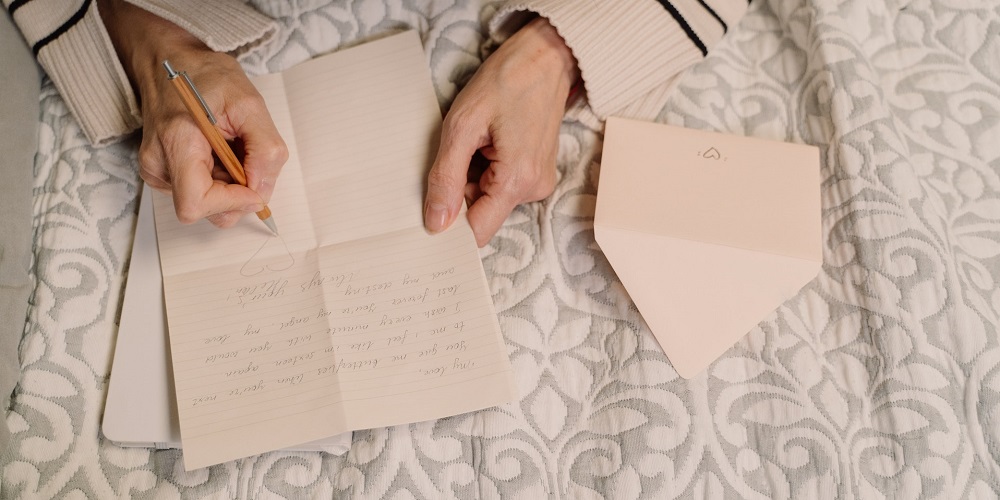 My love,
You give me butterflies when you're next
to me. I feel like im sixteen again
I wish every minute with you would
last forever You're my angel my love
and my destiny
Always Yours